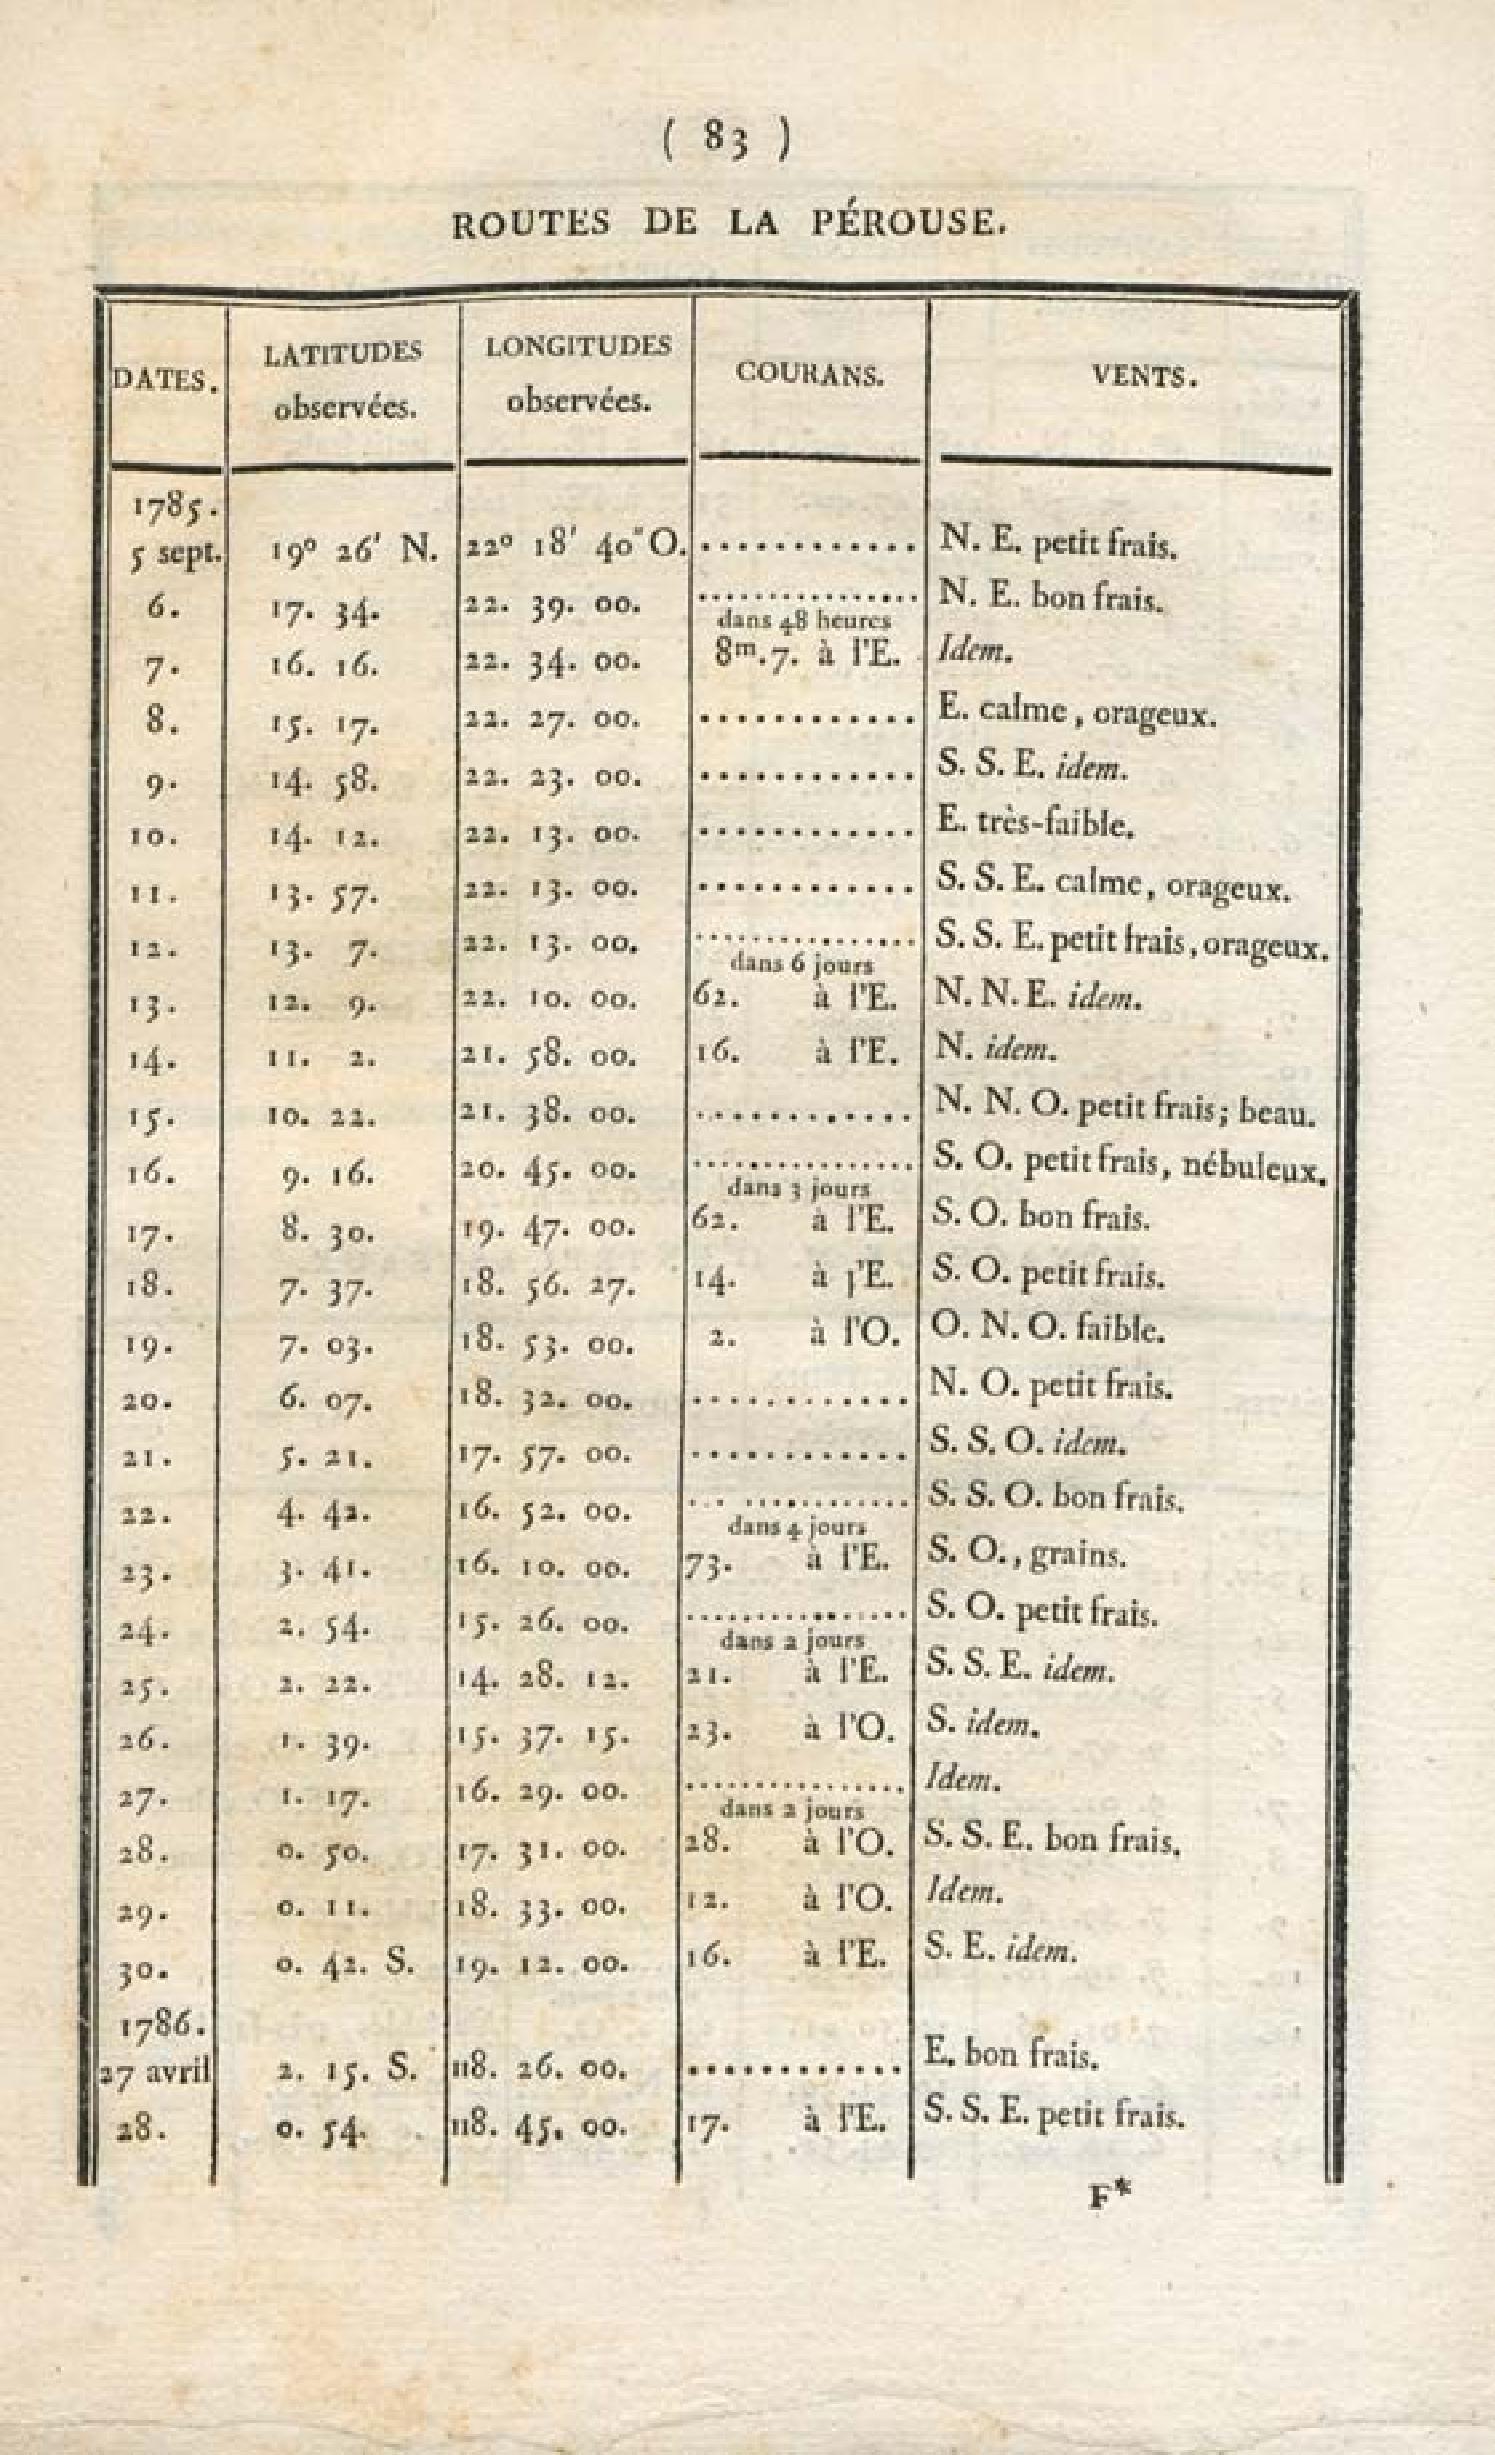 ( 83 )
ROUTES DE LA PÉROUSE.
DATES. LATITUDES observées. LONGITUDES observées. COURANS. VENTS.
1785.
5 sept. 19° 26' N. 22° 18' 40" O. ............ N. E. petit frais.
6. 17. 34. 22. 39. 00. ................ N. E. bon frais.
dans 48 heures
7. 16. 16. 22. 34. 00. 8m.7. à l'E. Idem.
8. 15. 17. 22. 27. 00. ............ E. calme, orageux.
9. 14. 58. 22. 23. 00. ............ S. S. E. idem.
10. 14. 12. 22. 13. 00. ............ E. très-faible.
11. 13. 57. 22. 13. 00. ............ S. S. E. calme, orageux.
12. 13. 7. 22. 13. 00. ................ S. S. E. petit frais, orageux.
dans 6 jours
13. 12. 9. 22. 10. 00. 62. à l'E. N. N. E. idem.
14. 11. 2. 21. 58. 00. 16. à l'E. N. idem.
15. 10. 22. 21. 38. 00. ............ N. N. O. petit frais; beau.
16. 9. 16. 20. 45. 00. ................ S. O. petit frais, nébuleux.
dans 3 jours
17. 8. 30. 19. 47. 00. 62. à l'E. S. O. bon frais.
18. 7. 37. 18. 56. 27. 14. à l'E. S. O. petit frais.
19. 7. 03. 18. 53. 00. 2. à l'O. O. N. O. faible.
20. 6. 07. 18. 32. 00. ............ N. O. petit frais.
21. 5. 21. 17. 57. 00. ............ S. S. O. idem.
22. 4. 42. 16. 52. 00. ............... S. S. O. bon frais.
dans 4 jours
23. 3. 41. 16. 10. 00. 73. à l'E. S. O., grains.
24. 2. 54. 15. 26. 00. ................ S. O. petit frais.
dans 2 jours
25. 2. 22. 14. 28. 12. 21. à l'E. S. S. E. idem.
26. 1. 39. 15. 37. 15. 23. à l'O. S. idem.
27. 1. 17. 16. 29. 00. ................ Idem.
dans 2 jours
28. 0. 50. 17. 31. 00. 28. à l'O. S. S. E. bon frais.
29. 0. 11. 18. 33. 00. 12. à l'O. Idem.
30. 0. 42. S. 19. 12. 00. 16. à l'E. S. E. idem.
1786.
27 avril 2. 15. S. 118. 26. 00. ............ E. bon frais.
28. 0. 54. 118. 45. 00. 17. à l'E. S. S. E. petit frais.
F*